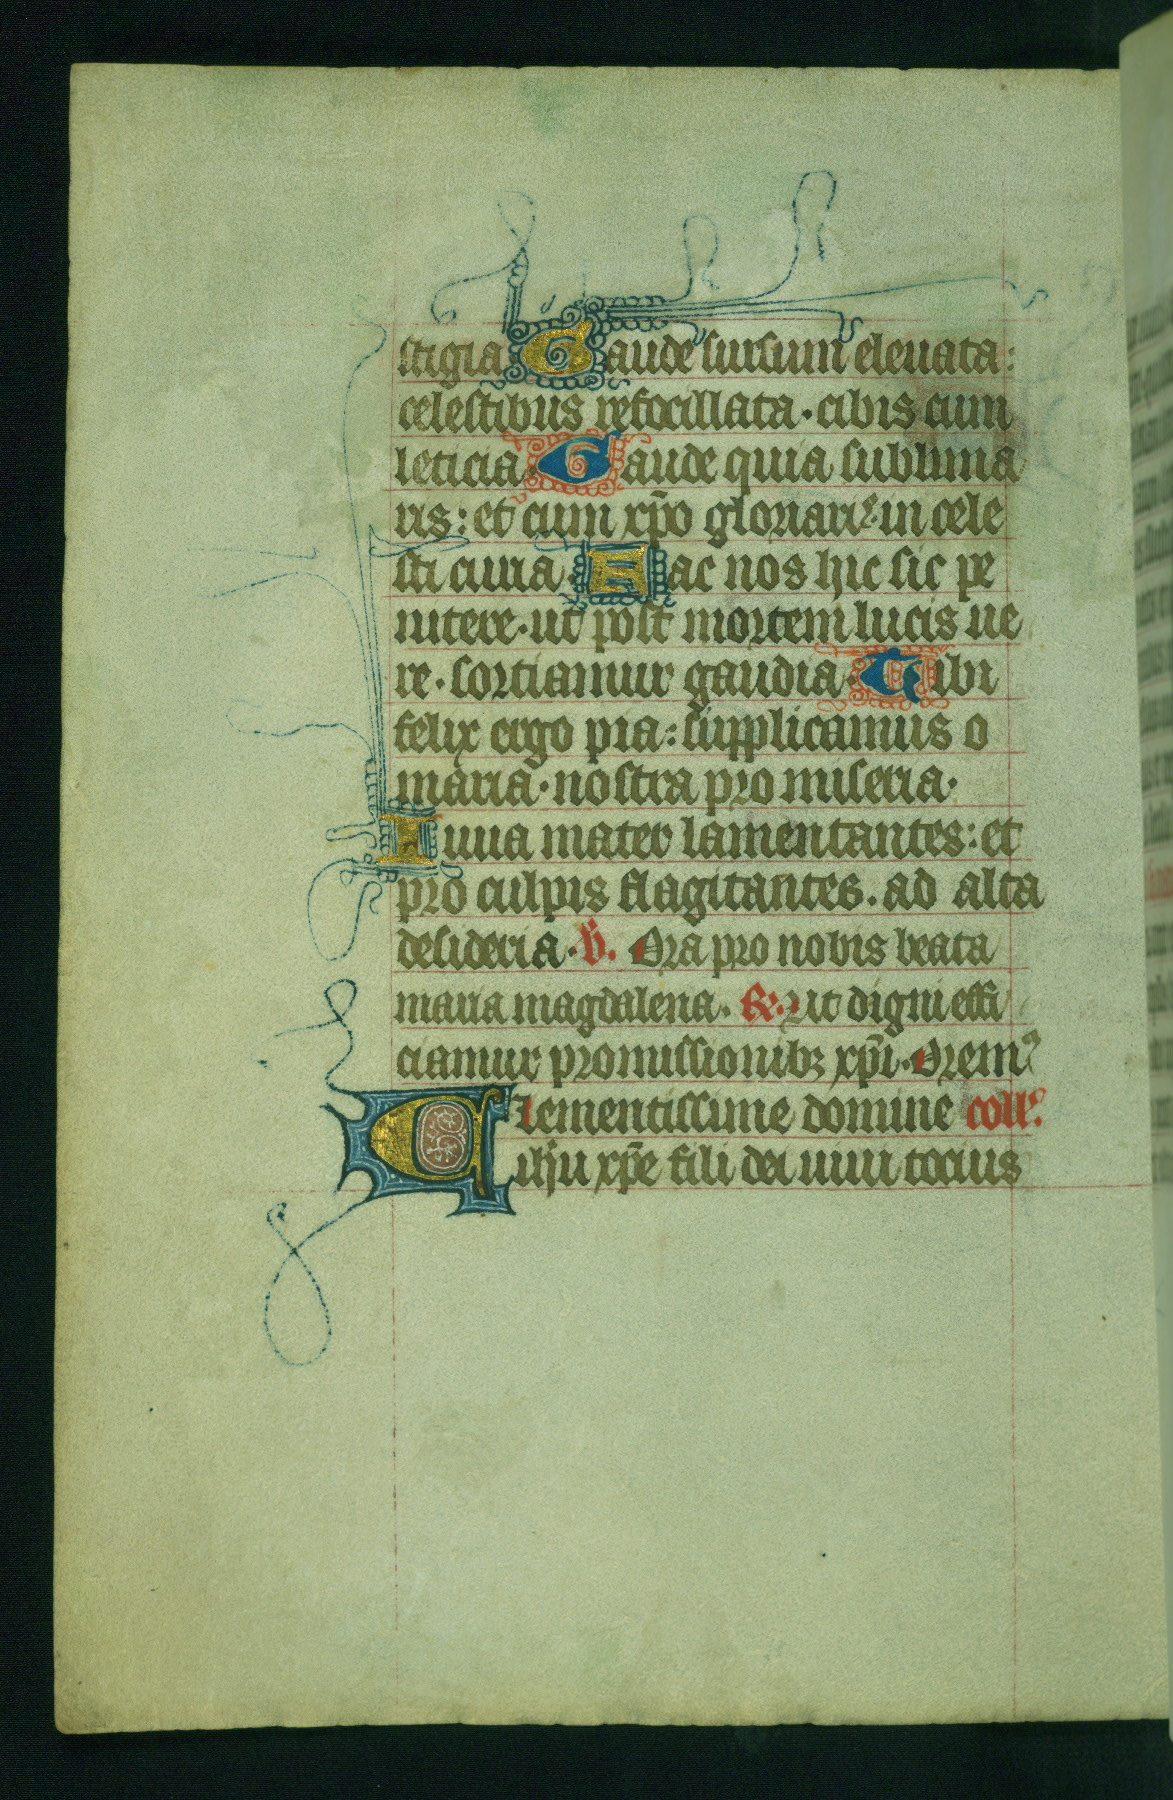 stigia Gaude sursum eleuata:
celestibus refocillata· cibis cum
leticia Gaude quia sublima
ris: et cum xp̄o gloriaris· in cele
sti curia Fac nos hic sic pe
nitere· ut post mortem lucis ue
re· sortiamur gaudia Tibi
felix ergo pia: supplicamus o
maria· nostra pro miseria·
Iuua mater lamentantes: et
pro culpis flagitantes. ad alta
desideria· v̄. Ora pro nobis beata
maria magdalena. R̄. Ut digni effi
ciamur promissionibꝫ xp̄i· Oremꝰ
Clementissime domine coll'
ihu xp̄e fili dei uiui tocius